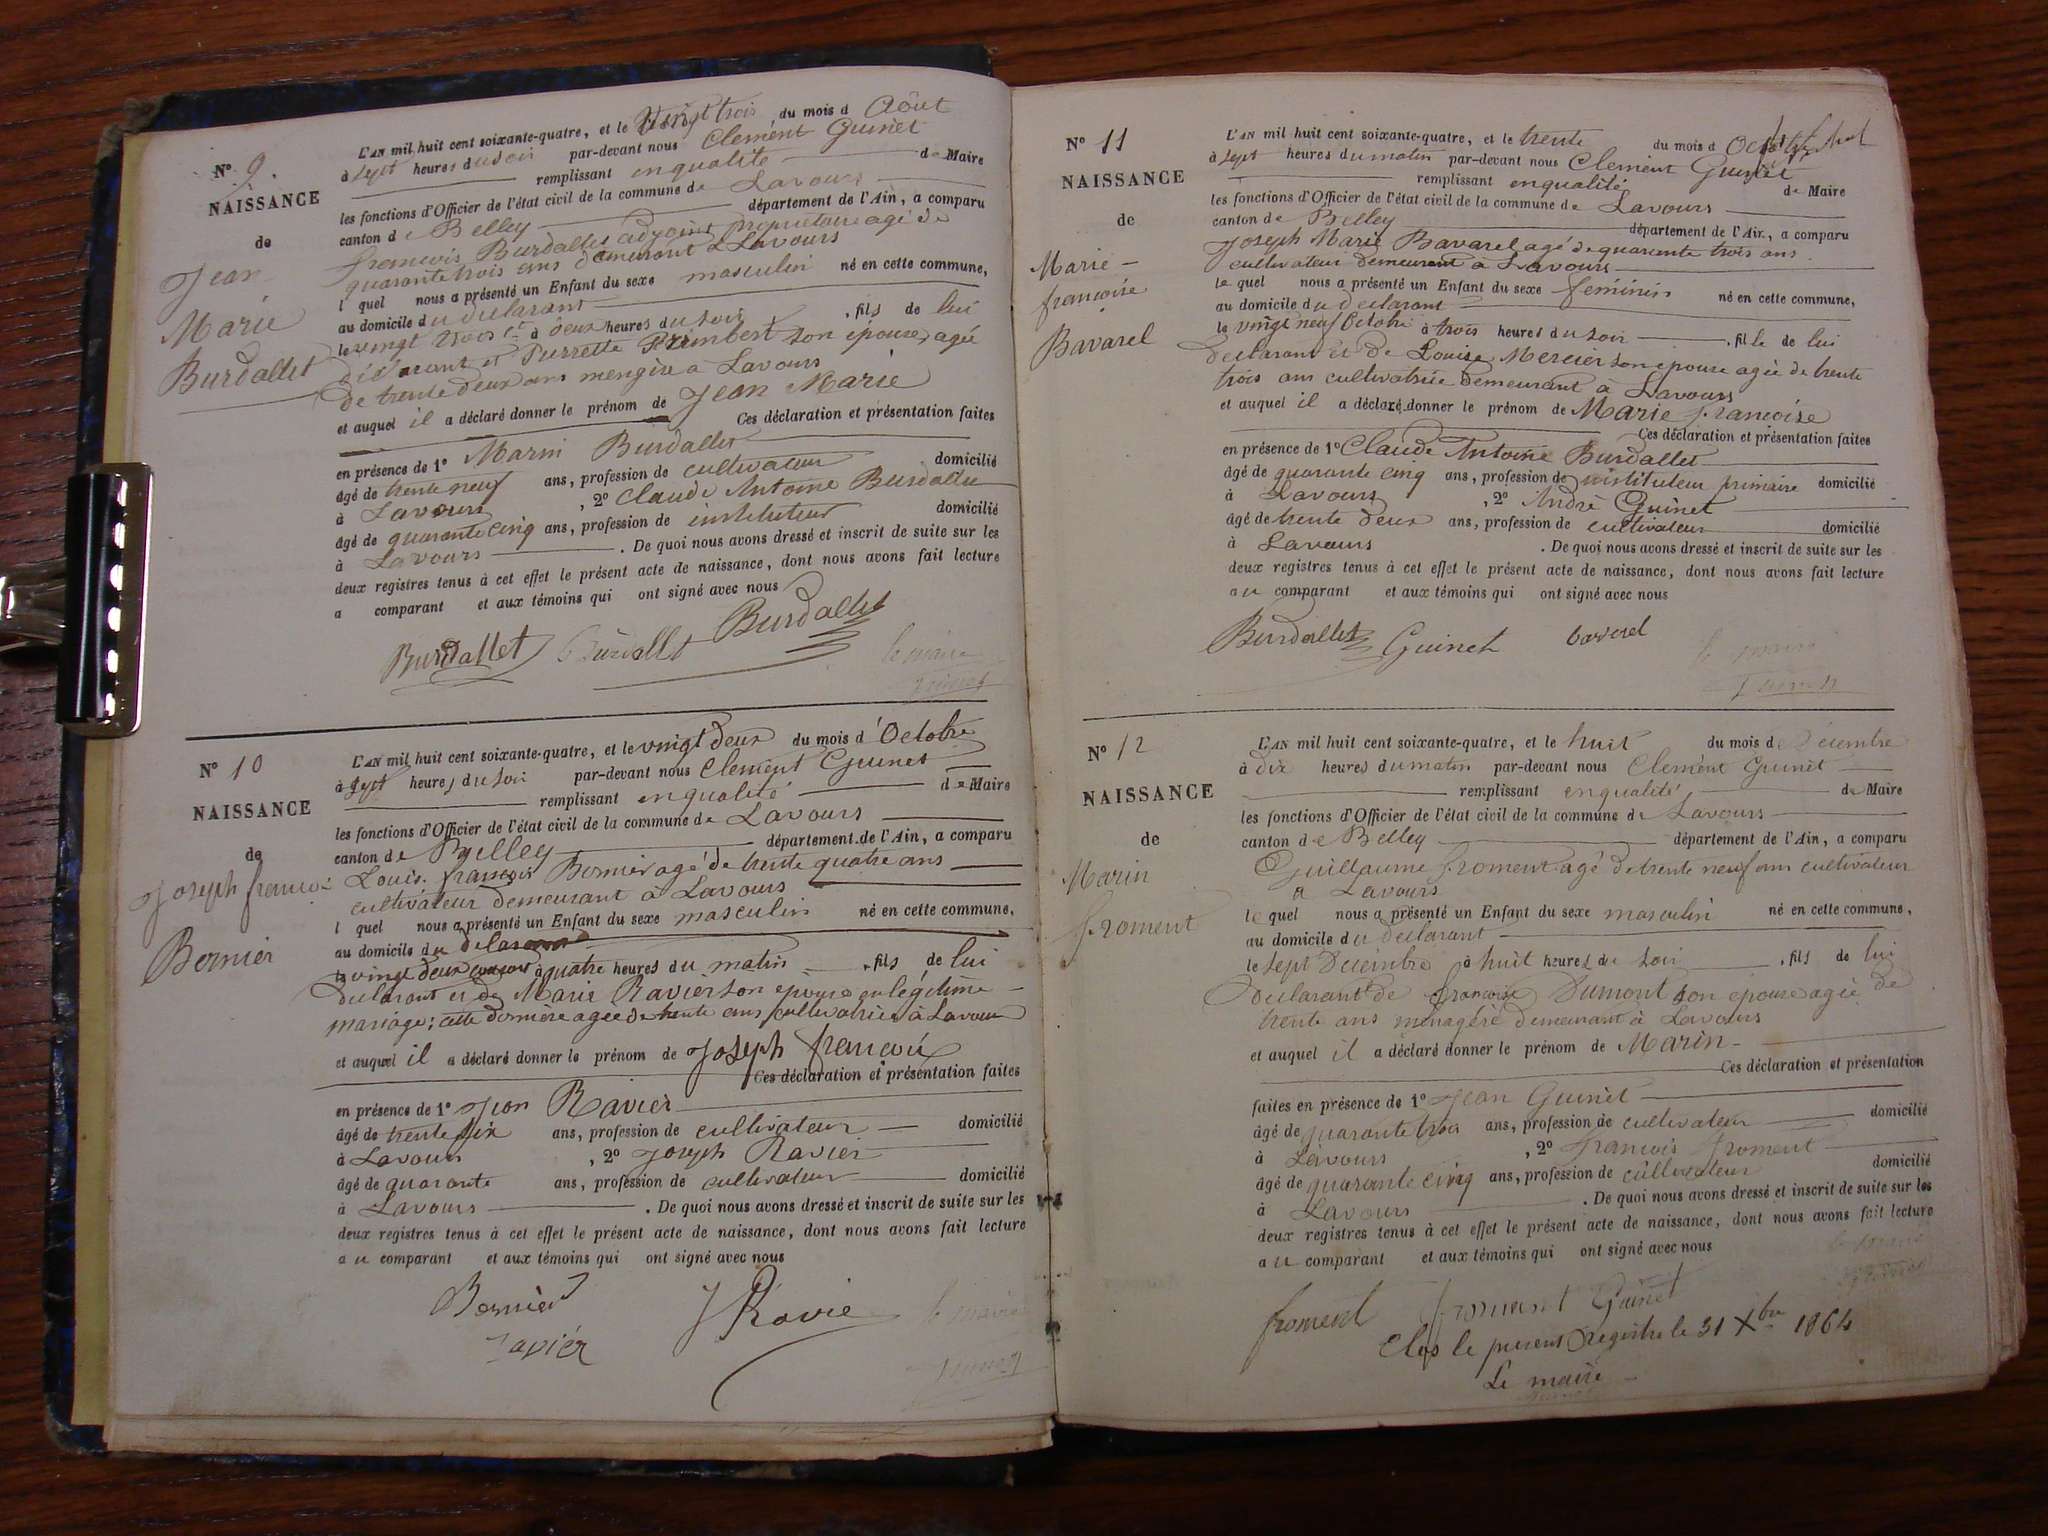 N° 9.
NAISSANCE
de
Jean
Marie
Burdallet
L'AN mil huit cent soixante-quatre, et le Vingt trois du mois d Août
à sept heures du soir par-devant nous Clement Guinet
remplissant en qualité de Maire
les fonctions d'Officier de l'état civil de la commune de Lavours
canton de Belley département de l'Ain, a comparu
francois Burdallet adjoint propriétaire agé de
quarante trois ans demeurant à Lavours
l quel nous a présenté un Enfant du sexe masculin né en cette commune,
au domicile du declarant
le vingt trois ct à deux heures du soir , fils de lui
déclarant et Pierrette son épouse, agée
de trente deux ans à Lavours
et auquel il a déclaré donner le prénom de Jean Marie
Ces déclaration et présentation faites
en présence de 1° Marin Burdallet
âgé de trente neuf ans, profession de cultivateur domicilié
à Lavours , 2° Claude Antoine Burdallet
âgé de quarante cinq ans, profession de instituteur domicilié
à Lavours . De quoi nous avons dressé et inscrit de suite sur les
deux registres tenus à cet effet le présent acte de naissance, dont nous avons fait lecture
a comparant et aux témoins qui ont signé avec nous
Burdallet Burdallet Burdallet
le maire
Guinet
N° 10
NAISSANCE
de
Joseph francoi
Bernier
L'AN mil huit cent soixante-quatre, et le vingt deux du mois d'Octobre
à sept heures du soir par-devant nous Clement Guinet
remplissant en qualité de Maire
les fonctions d'Officier de l'état civil de la commune de Lavours
canton de Belley département de l'Ain, a comparu
Louis francois Bernier agé de trente quatre ans
cultivateur demeurant à Lavours
l quel nous a présenté un Enfant du sexe masculin né en cette commune,
au domicile du
le vingt deux à quatre heures du matin , fils de lui
declarant et de Marie Ravier son epouse en légitime
mariage; cette dernière agée de trente ans cultivatrice à Lavours
et auquel il a déclaré donner le prénom de Joseph francois
Ces déclaration et présentation faites
en présence de 1° Jean Ravier
âgé de trente six ans, profession de cultivateur domicilié
à Lavours , 2° Joseph Ravier
âgé de quarante ans, profession de cultivateur domicilié
à Lavours . De quoi nous avons dressé et inscrit de suite sur les
deux registres tenus à cet effet le présent acte de naissance, dont nous avons fait lecture
au comparant et aux témoins qui ont signé avec nous
Bernier J Ravie le maire
ravier Guinet
N° 11
NAISSANCE
de
Marie
francoise
Bavarel
L'AN mil huit cent soixante-quatre, et le trente du mois d Octobre
à sept heures du matin par-devant nous Clement Guinet
remplissant en qualité de Maire
les fonctions d'Officier de l'état civil de la commune de Lavours
canton de Belley département de l'Ain, a comparu
Joseph Marie Bavarel agé de quarante trois ans
cultivateur demeurant à Lavours
le quel nous a présenté un Enfant du sexe feminin né en cette commune,
au domicile du declarant
le vingt neuf Octobre à trois heures du soir , fille de lui
declarant et de Louise Mercier son epouse agée de trente
trois ans cultivatrice demeurant à Lavours
et auquel il a déclaré donner le prénom de Marie francoise
Ces déclaration et présentation faites
en présence de 1° Claude Antoine Burdallet
âgé de quarante cinq ans, profession de instituteur primaire domicilié
à Lavours , 2° André Guinet
âgé de trente deux ans, profession de cultivateur domicilié
à Lavours . De quoi nous avons dressé et inscrit de suite sur les
deux registres tenus à cet effet le présent acte de naissance, dont nous avons fait lecture
au comparant et aux témoins qui ont signé avec nous
Burdallet Guinet bavarel le maire
Guinet
N° 12
NAISSANCE
de
Marin
froment
L'AN mil huit cent soixante-quatre, et le huit du mois de Décembre
à dix heures du matin par-devant nous Clement Guinet
remplissant en qualité de Maire
les fonctions d'Officier de l'état civil de la commune de Lavours
canton de Belley département de l'Ain, a comparu
Guillaume froment agé de trente neuf ans cultivateur
a Lavours
le quel nous a présenté un Enfant du sexe masculin né en cette commune,
au domicile du declarant
le sept Decembre à huit heures du soir , fils de lui
declarant de francoise Dumont son epouse agée de
trente ans ménagère demeurant à Lavours
et auquel il a déclaré donner le prénom de Marin
Ces déclaration et présentation
faites en présence de 1° Jean Guinet
âgé de quarante trois ans, profession de cultivateur domicilié
à Lavours , 2° francois froment
âgé de quarante cinq ans, profession de cultivateur domicilié
à Lavours . De quoi nous avons dressé et inscrit de suite sur les
deux registres tenus à cet effet le présent acte de naissance, dont nous avons fait lecture
au comparant et aux témoins qui ont signé avec nous
le maire
Guinet
froment froment Guinet
Clos le présent registre le 31 Xbre 1864
Le maire